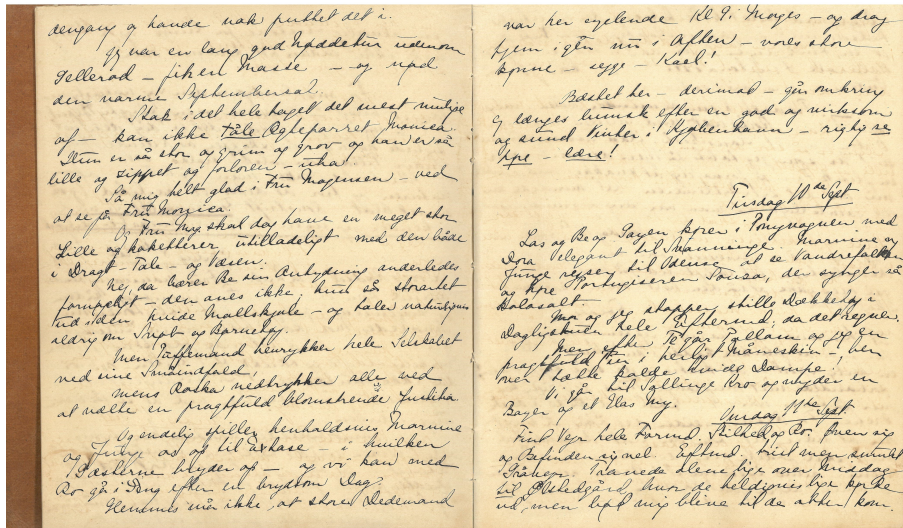 dengang og havde nok puttet det i.
Jeg var en lang god Nøddetur udenom
Gellerod – fik en Masse – og nød
den varme Septembersol.
Stak i det hele taget det mest mulige
af – kan ikke tåle Ægteparret Monica.
Hun er så stor og grim og grov og han er så
lille og sippet og forloren – uha.
Så mig helt glad i Fru Mogensen – ved
at se på Fru Monica.
Og Fru Mog. skal dog have en meget stor
Lille og koketterer utilladeligt med den både
i Dragt – Tale – og Væsen.
Nej, da bærer Be sin Antydning anderledes
fornøjeligt – den anes ikke, hun så storartet
ud i den hvide Molskjole – og taler naturligvis
aldrig om Snot og Barnetøj.
Men Taffemand henrykker hele Selskabet
ved sine Småindfald,
mens Raska nedtrykker alle ved
at vælte en pragtfuld blomstrende Fuchsia.
Og endelig spiller henholdsvis Marmine
og Junge os og til extase – i hvilken
Gæsterne bryder op – og vi kan med
Ro gå i Seng efter en brydsom Dag.
Glemmes må ikke, at store Dedemand
var her cyclende Kl 9 i Morges – og drog
hjem igen nu i Aften – vores store
kønne – sygge – Kael!
Bæstet her – derimod – går omkring
og længes humsk efter en god og virksom
og sund Vinter i Kjøbenhavn – rigtig se
høre – lære!
Tirsdag 10de Sept
Las og Be og Søgen kører i Ponyvognen med
Dora elegant til Svanninge. Marmine og
Junge rejser til Odense, at se Vandrefalken
og høre Portugiseren Souza, der synger så
Mor og jeg stopper stille Dækketøj i
Dagligstuen hele Eftermd, da det regner.
Men efter Te går Tallam og jeg en
pragtfuld Tur i herligt Måneskin – hen
over tætte kolde hvide Dampe.
Vi går til Sollinge Kro og nyder en
Bayer og et Glas My.
Onsdag 11te Sept.
Fint Vejr hele Formd. Stilhed og Ro. Enen sig
og Befinden sig vel. Eftmd. trist mer smukt
Gråvejr. Tranede alene lige over Middag
til Ølstedgård, hvor de heldigvis lige kørte
ud, men bød mig blive til de atter kom.